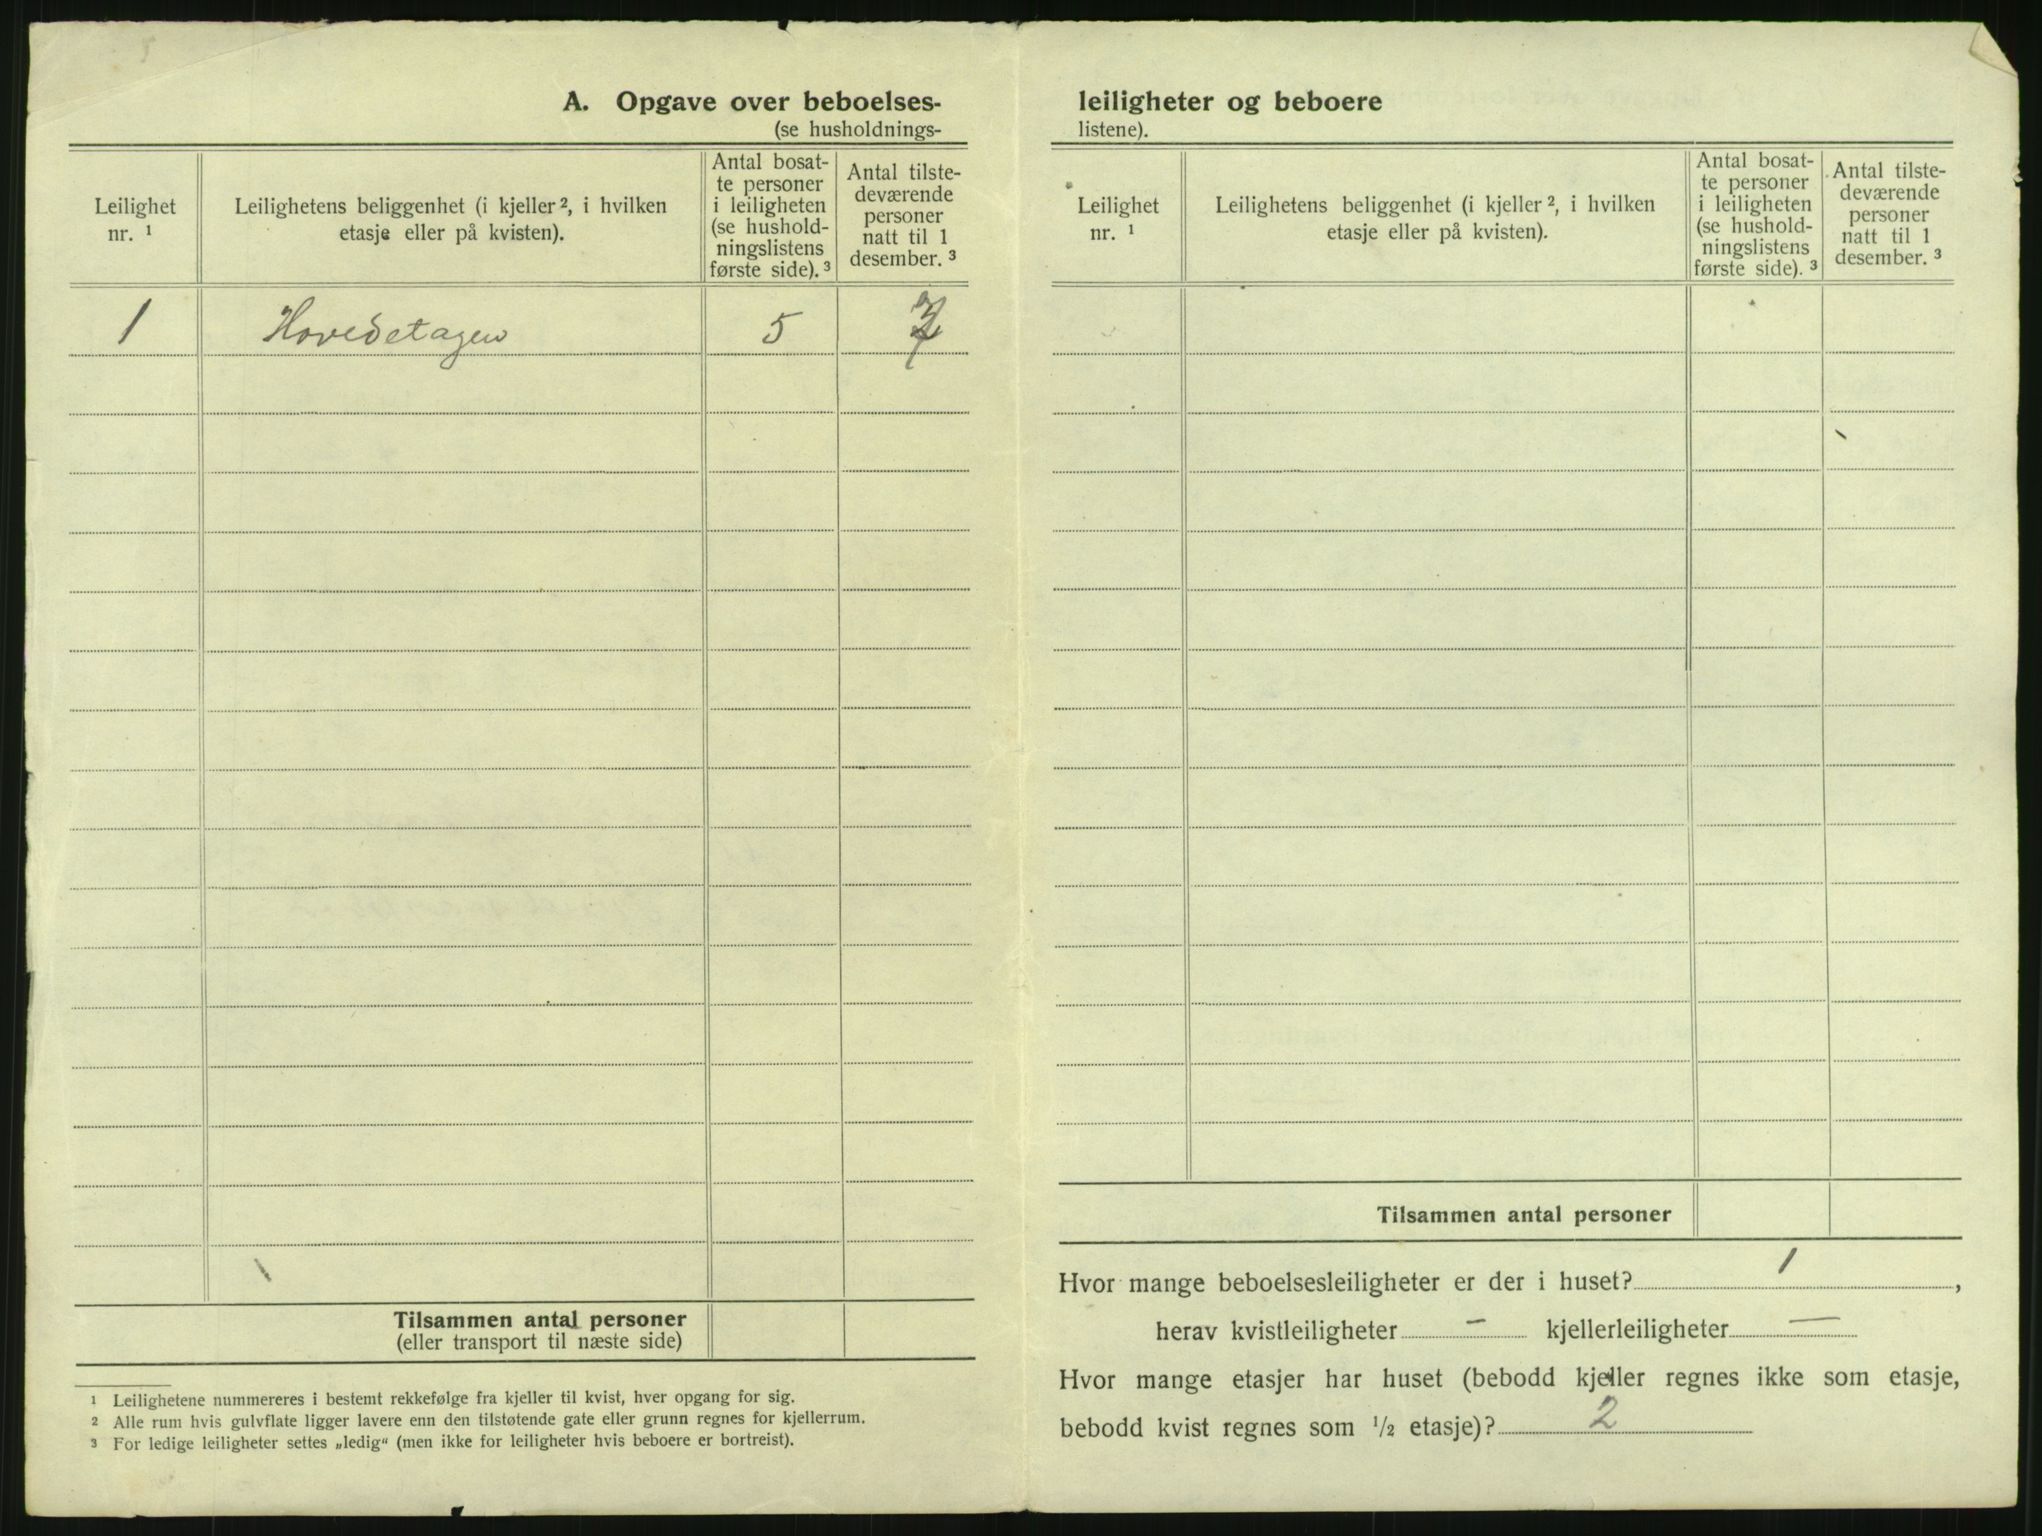 5
A. Opgave over beboelses-
(se husholdnings-
Leilighet nr. ¹
Leilighetens beliggenhet (i kjeller ², i hvilken
etasje eller på kvisten).
Antal bosat-
te personer
i leiligheten
(se hushold-
ningslistens
første side). ³
Antal tilste-
deværende
personer
natt til 1
desember. ³
1 Hovedetagen 5
Tilsammen antal personer
(eller transport til næste side)
¹ Leilighetene nummereres i bestemt rekkefølge fra kjeller til kvist, hver opgang for sig.
² Alle rum hvis gulvflate ligger lavere enn den tilstøtende gate eller grunn regnes for kjellerrum.
³ For ledige leiligheter settes „ledig“ (men ikke for leiligheter hvis beboere er bortreist).
leiligheter og beboere
listene).
Leilighet
nr. ¹
Leilighetens beliggenhet (i kjeller ², i hvilken
etasje eller på kvisten).
Antal bosat-
te personer
i leiligheten
(se hushold-
ningslistens
første side). ³
Antal tilste-
deværende
personer
natt til 1
desember. ³
Tilsammen antal personer
Hvor mange beboelsesleiligheter er der i huset? 1 ,
herav kvistleiligheter – kjellerleiligheter —
Hvor mange etasjer har huset (bebodd kjeller regnes ikke som etasje,
bebodd kvist regnes som ½ etasje)? 2